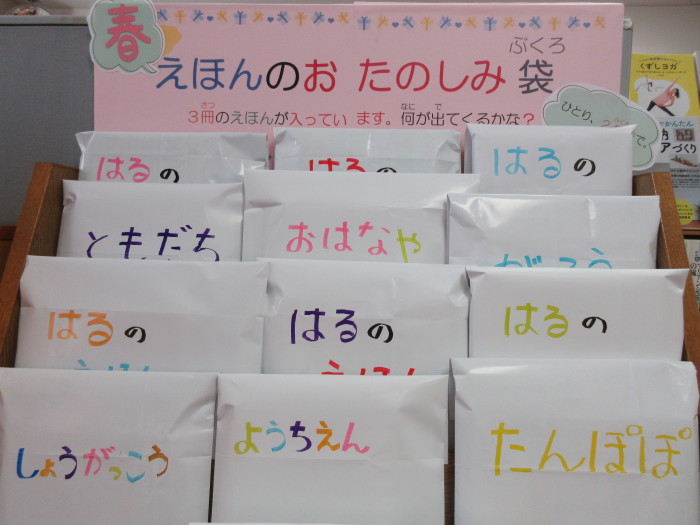 春
えほんのお たのしみ袋
ぶくろ
さつ
なに
で
3冊のえほんが入ってい ます。何が出てくるかな？
ひとり、
くずしヨガ
かんたん
アづくり
はるの
はるの
はるの
ともだち
おはなや
がっこう
はるの
はるの
はるの
えほん
えほん
しょうがっこう
ようちえん
たんぽぽ